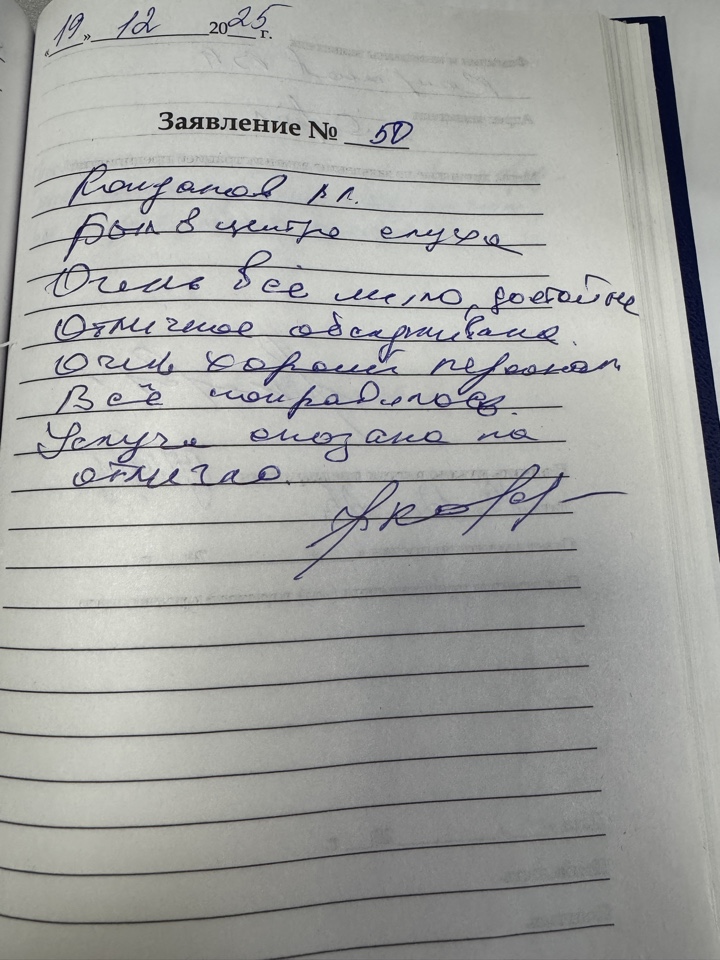 «19» 12 2025 г.
Заявление № 50
Был в центре слуха
Очень всё мило, достойно
Отличное обслуживание.
Очень хороший персонал
Всё понравилось.
Услуга оказана на
отлично.